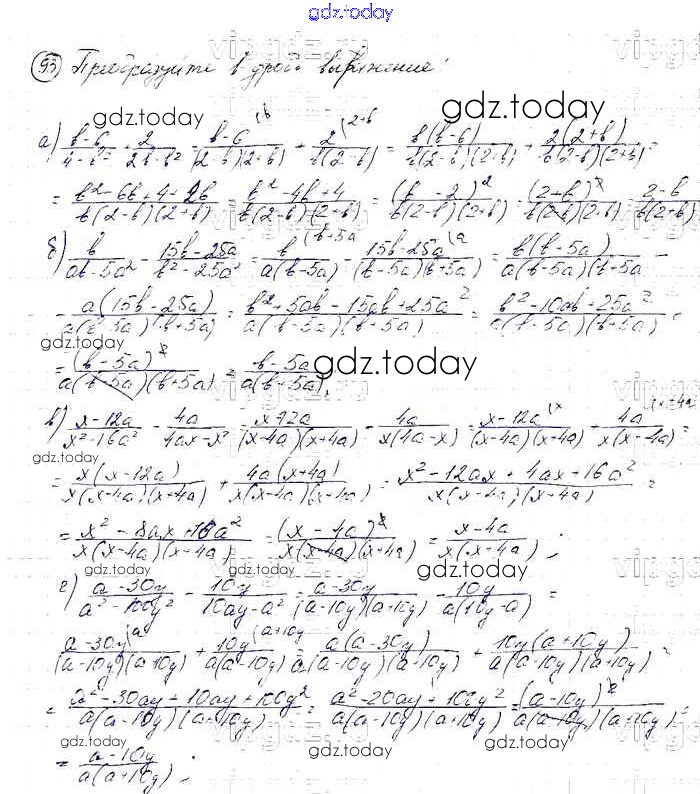 gdz.today
93) Преобразуйте в дробь выражение:
а) (b-6)/(4-b²) + 2/(2b-b²) = (b-6)/((2-b)(2+b)) (b + 2/(b(2-b)) (2+b = b(b-6)/(b(2-b)(2+b)) + 2(2+b)/(b(2-b)(2+b)) =
= (b²-6b+4+2b)/(b(2-b)(2+b)) = (b²-4b+4)/(b(2-b)(2+b)) = (b-2)²/(b(2-b)(2+b)) = (2-b)²/(b(2-b)(2+b)) = (2-b)/(b(2+b))
б) b/(ab-5a²) - (15b-25a)/(b²-25a²) = b/(a(b-5a)) (b+5a - (15b-25a)/((b-5a)(b+5a)) (a = b(b-5a)/(a(b-5a)(b+5a) -
- a(15b-25a)/(a(b-5a)(b+5a)) = (b²+5ab-15ab+25a²)/(a(b-5a)(b+5a)) = (b²-10ab+25a²)/(a(b-5a)(b+5a)) =
= (b-5a)²/(a(b-5a)(b+5a)) = (b-5a)/(a(b+5a)),
в) (x-12a)/(x²-16a²) - 4a/(4ax-x²) = (x-12a)/((x-4a)(x+4a)) - 4a/(x(4a-x)) = (x-12a)/((x-4a)(x+4a)) (x + 4a/(x(x-4a)) (x+4a =
= x(x-12a)/(x(x-4a)(x+4a)) + 4a(x+4a)/(x(x-4a)(x+4a)) = (x²-12ax+4ax+16a²)/(x(x-4a)(x+4a)) =
= (x²-8ax+16a²)/(x(x-4a)(x+4a)) = (x-4a)²/(x(x-4a)(x+4a)) = (x-4a)/(x(x+4a));
г) (a-30y)/(a²-100y²) - 10y/(10ay-a²) = (a-30y)/((a-10y)(a+10y)) - 10y/(a(10y-a)) =
(a-30y)/((a-10y)(a+10y)) (a + 10y/(a(a-10y)) (a+10y = a(a-30y)/(a(a-10y)(a+10y)) + 10y(a+10y)/(a(a-10y)(a+10y)) =
= (a²-30ay+10ay+100y²)/(a(a-10y)(a+10y)) = (a²-20ay+100y²)/(a(a-10y)(a+10y)) = (a-10y)²/(a(a-10y)(a+10y)) =
= (a-10y)/(a(a+10y));